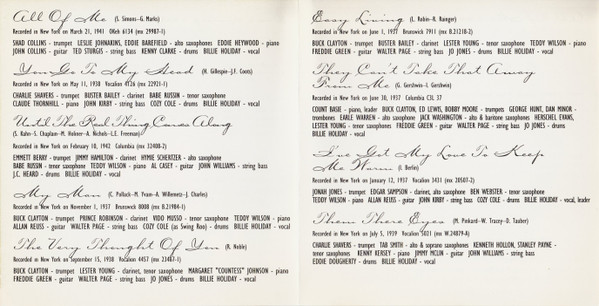 All Of Me (S. Simons–G. Marks)
Recorded in New York on March 21, 1941 OKeh 6134 (mx 29987-1)
SHAD COLLINS - trumpet LESLIE JOHNAKINS, EDDIE BAREFIELD - alto saxophones EDDIE HEYWOOD - piano
JOHN COLLINS - guitar TED STURGIS - string bass KENNY CLARKE - drums BILLIE HOLIDAY - vocal
You Go To My Head (H. Gillespie–J.F. Coots)
Recorded in New York on May 11, 1938 Vocalion 4126 (mx 22921-1)
CHARLIE SHAVERS - trumpet BUSTER BAILEY - clarinet BABE RUSSIN - tenor saxophone
CLAUDE THORNHILL - piano JOHN KIRBY - string bass COZY COLE - drums BILLIE HOLIDAY - vocal
Until The Real Thing Comes Along
(S. Kahn–S. Chaplan–M. Holmer–A. Nichols–L.E. Freeman)
Recorded in New York on February 10, 1942 Columbia (mx 32408-2)
EMMETT BERRY - trumpet JIMMY HAMILTON - clarinet HYMIE SCHERTZER - alto saxophone
BABE RUSSIN - tenor saxophone TEDDY WILSON - piano AL CASEY - guitar JOHN WILLIAMS - string bass
J.C. HEARD - drums BILLIE HOLIDAY - vocal
My Man (C. Pollack–M. Yvain–A. Willemetz–J. Charles)
Recorded in New York on November 1, 1937 Brunswick 8008 (mx B.21984-1)
BUCK CLAYTON - trumpet PRINCE ROBINSON - clarinet VIDO MUSSO - tenor saxophone TEDDY WILSON - piano
ALLAN REUSS - guitar WALTER PAGE - string bass COZY COLE (as Swing Roo) - drums BILLIE HOLIDAY - vocal
The Very Thought Of You (R. Noble)
Recorded in New York on September 15, 1938 Vocalion 4457 (mx 23467-1)
BUCK CLAYTON - trumpet LESTER YOUNG - clarinet, tenor saxophone MARGARET "COUNTESS" JOHNSON - piano
FREDDIE GREEN - guitar WALTER PAGE - string bass JO JONES - drums BILLIE HOLIDAY - vocal
Easy Living (L. Robin–R. Rainger)
Recorded in New York on June 1, 1937 Brunswick 7911 (mx B.21218-2)
BUCK CLAYTON - trumpet BUSTER BAILEY - clarinet LESTER YOUNG - tenor saxophone TEDDY WILSON - piano
FREDDIE GREEN - guitar WALTER PAGE - string bass JO JONES - drums BILLIE HOLIDAY - vocal
They Can't Take That Away
From Me (G. Gershwin–I. Gershwin)
Recorded in New York on June 30, 1937 Columbia C3L 37
COUNT BASIE - piano, leader BUCK CLAYTON, ED LEWIS, BOBBY MOORE - trumpets GEORGE HUNT, DAN MINOR -
trombones EARLE WARREN - alto saxophone JACK WASHINGTON - alto & baritone saxophones HERSCHEL EVANS,
LESTER YOUNG - tenor saxophones FREDDIE GREEN - guitar WALTER PAGE - string bass JO JONES - drums
BILLIE HOLIDAY - vocal
I've Got My Love To Keep
Me Warm (I. Berlin)
Recorded in New York on January 12, 1937 Vocalion 3431 (mx 20507-2)
JONAH JONES - trumpet EDGAR SAMPSON - clarinet, alto saxophone BEN WEBSTER - tenor saxophone
TEDDY WILSON - piano ALLAN REUSS - guitar JOHN KIRBY - string bass COZY COLE - drums BILLIE HOLIDAY - vocal, leader
Them There Eyes (M. Pinkard–W. Tracey–D. Tauber)
Recorded in New York on July 5, 1939 Vocalion 5021 (mx W.24879-A)
CHARLIE SHAVERS - trumpet TAB SMITH - alto & soprano saxophones KENNETH HOLLON, STANLEY PAYNE -
tenor saxophones KENNY KERSEY - piano JIMMY MCLIN - guitar JOHN WILLIAMS - string bass
EDDIE DOUGHERTY - drums BILLIE HOLIDAY - vocal